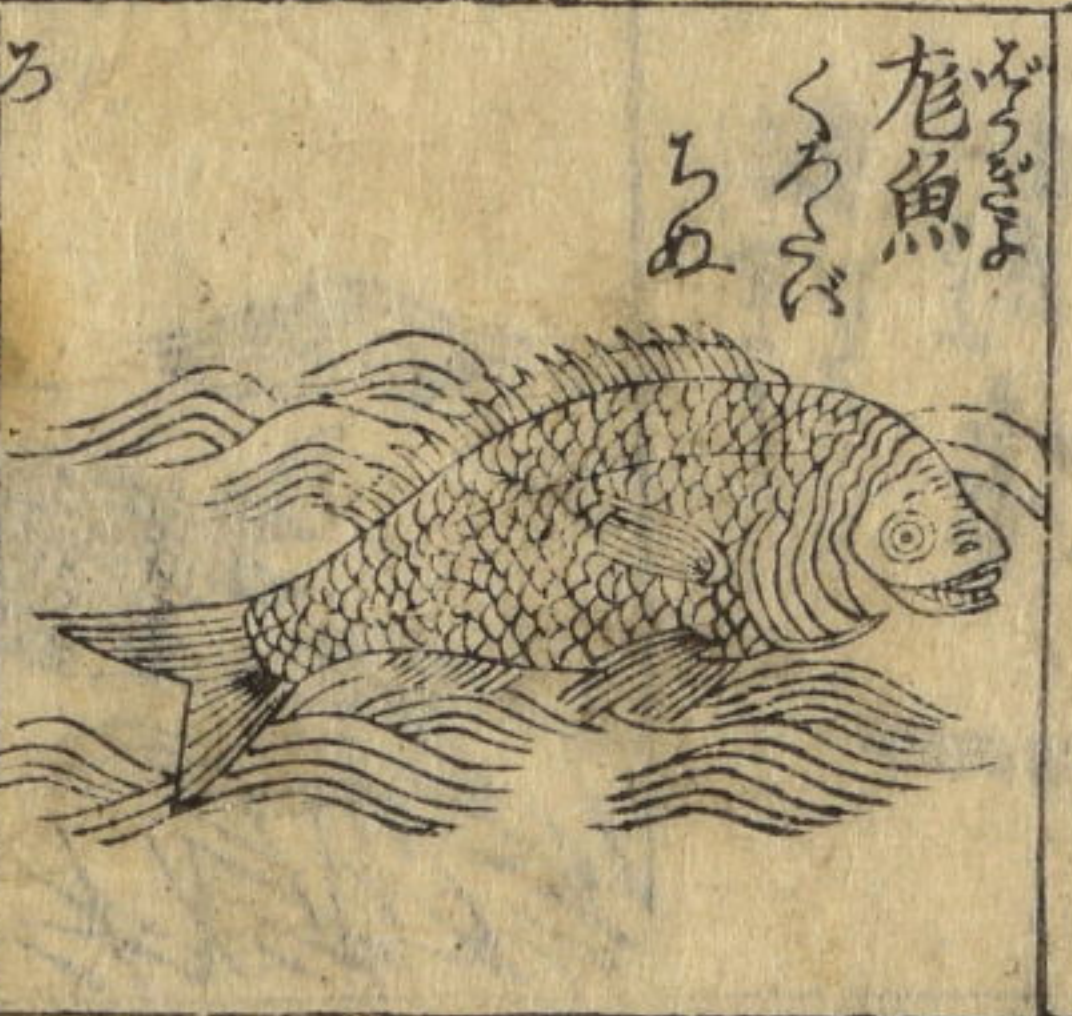 ばうぎよ
尨魚
くろたび
ちぬ
ろ